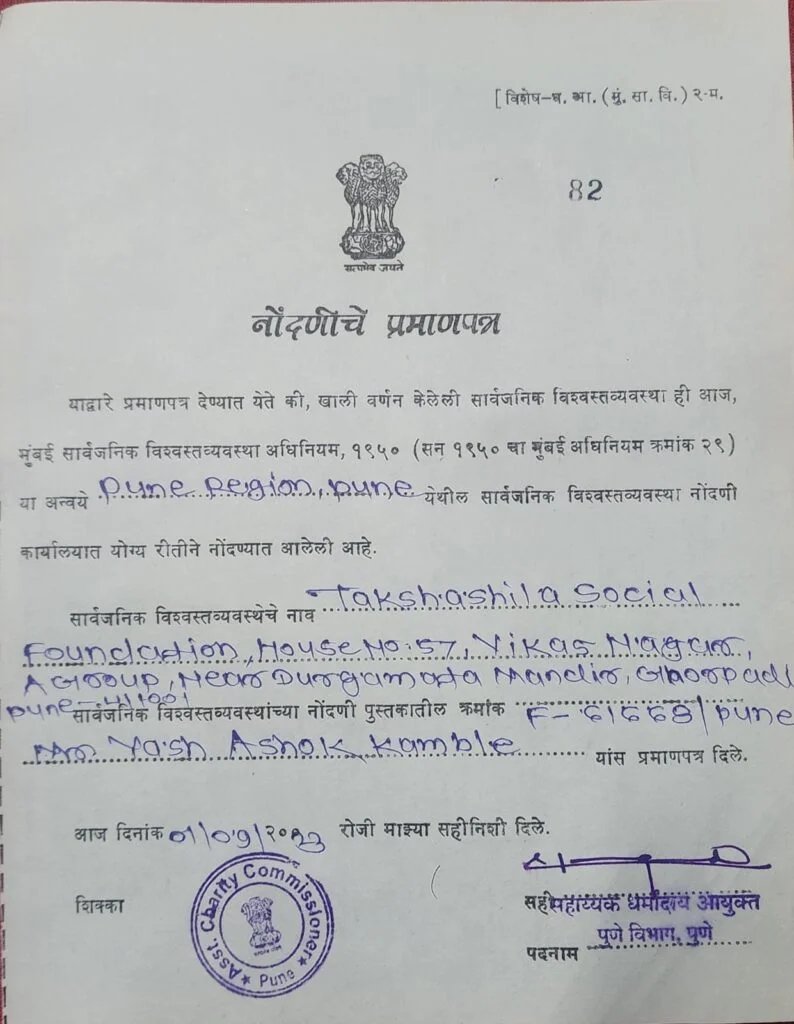 [विशेष-ध. आ. (मुं. सा. वि.) २-म.
82
सत्यमेव जयते
नोंदणीचे प्रमाणपत्र
याद्वारे प्रमाणपत्र देण्यात येते की, खाली वर्णन केलेली सार्वजनिक विश्वस्तव्यवस्था ही आज,
मुंबई सार्वजनिक विश्वस्तव्यवस्था अधिनियम, १९५० (सन् १९५० चा मुंबई अधिनियम क्रमांक २९)
या अन्वये Pune Region, pune येथील सार्वजनिक विश्वस्तव्यवस्था नोंदणी
कार्यालयात योग्य रीतीने नोंदण्यात आलेली आहे.
सार्वजनिक विश्वस्तव्यवस्थेचे नाव Takshashila Social
Foundation, House No. 57, Vikas Nagar,
A Group, Near Durgamata Mandir, Ghorpadi
pune - 411001
सार्वजनिक विश्वस्तव्यवस्थांच्या नोंदणी पुस्तकातील क्रमांक F- 61668/pune
Yash Ashok Kamble यांस प्रमाणपत्र दिले.
आज दिनांक 01/09/२०23 रोजी माझ्या सहीनिशी दिले.
शिक्का
Asst. Charity Commissioner
Pune
सही सहाय्यक धर्मादाय आयुक्त
पुणे विभाग, पुणे
पदनाम